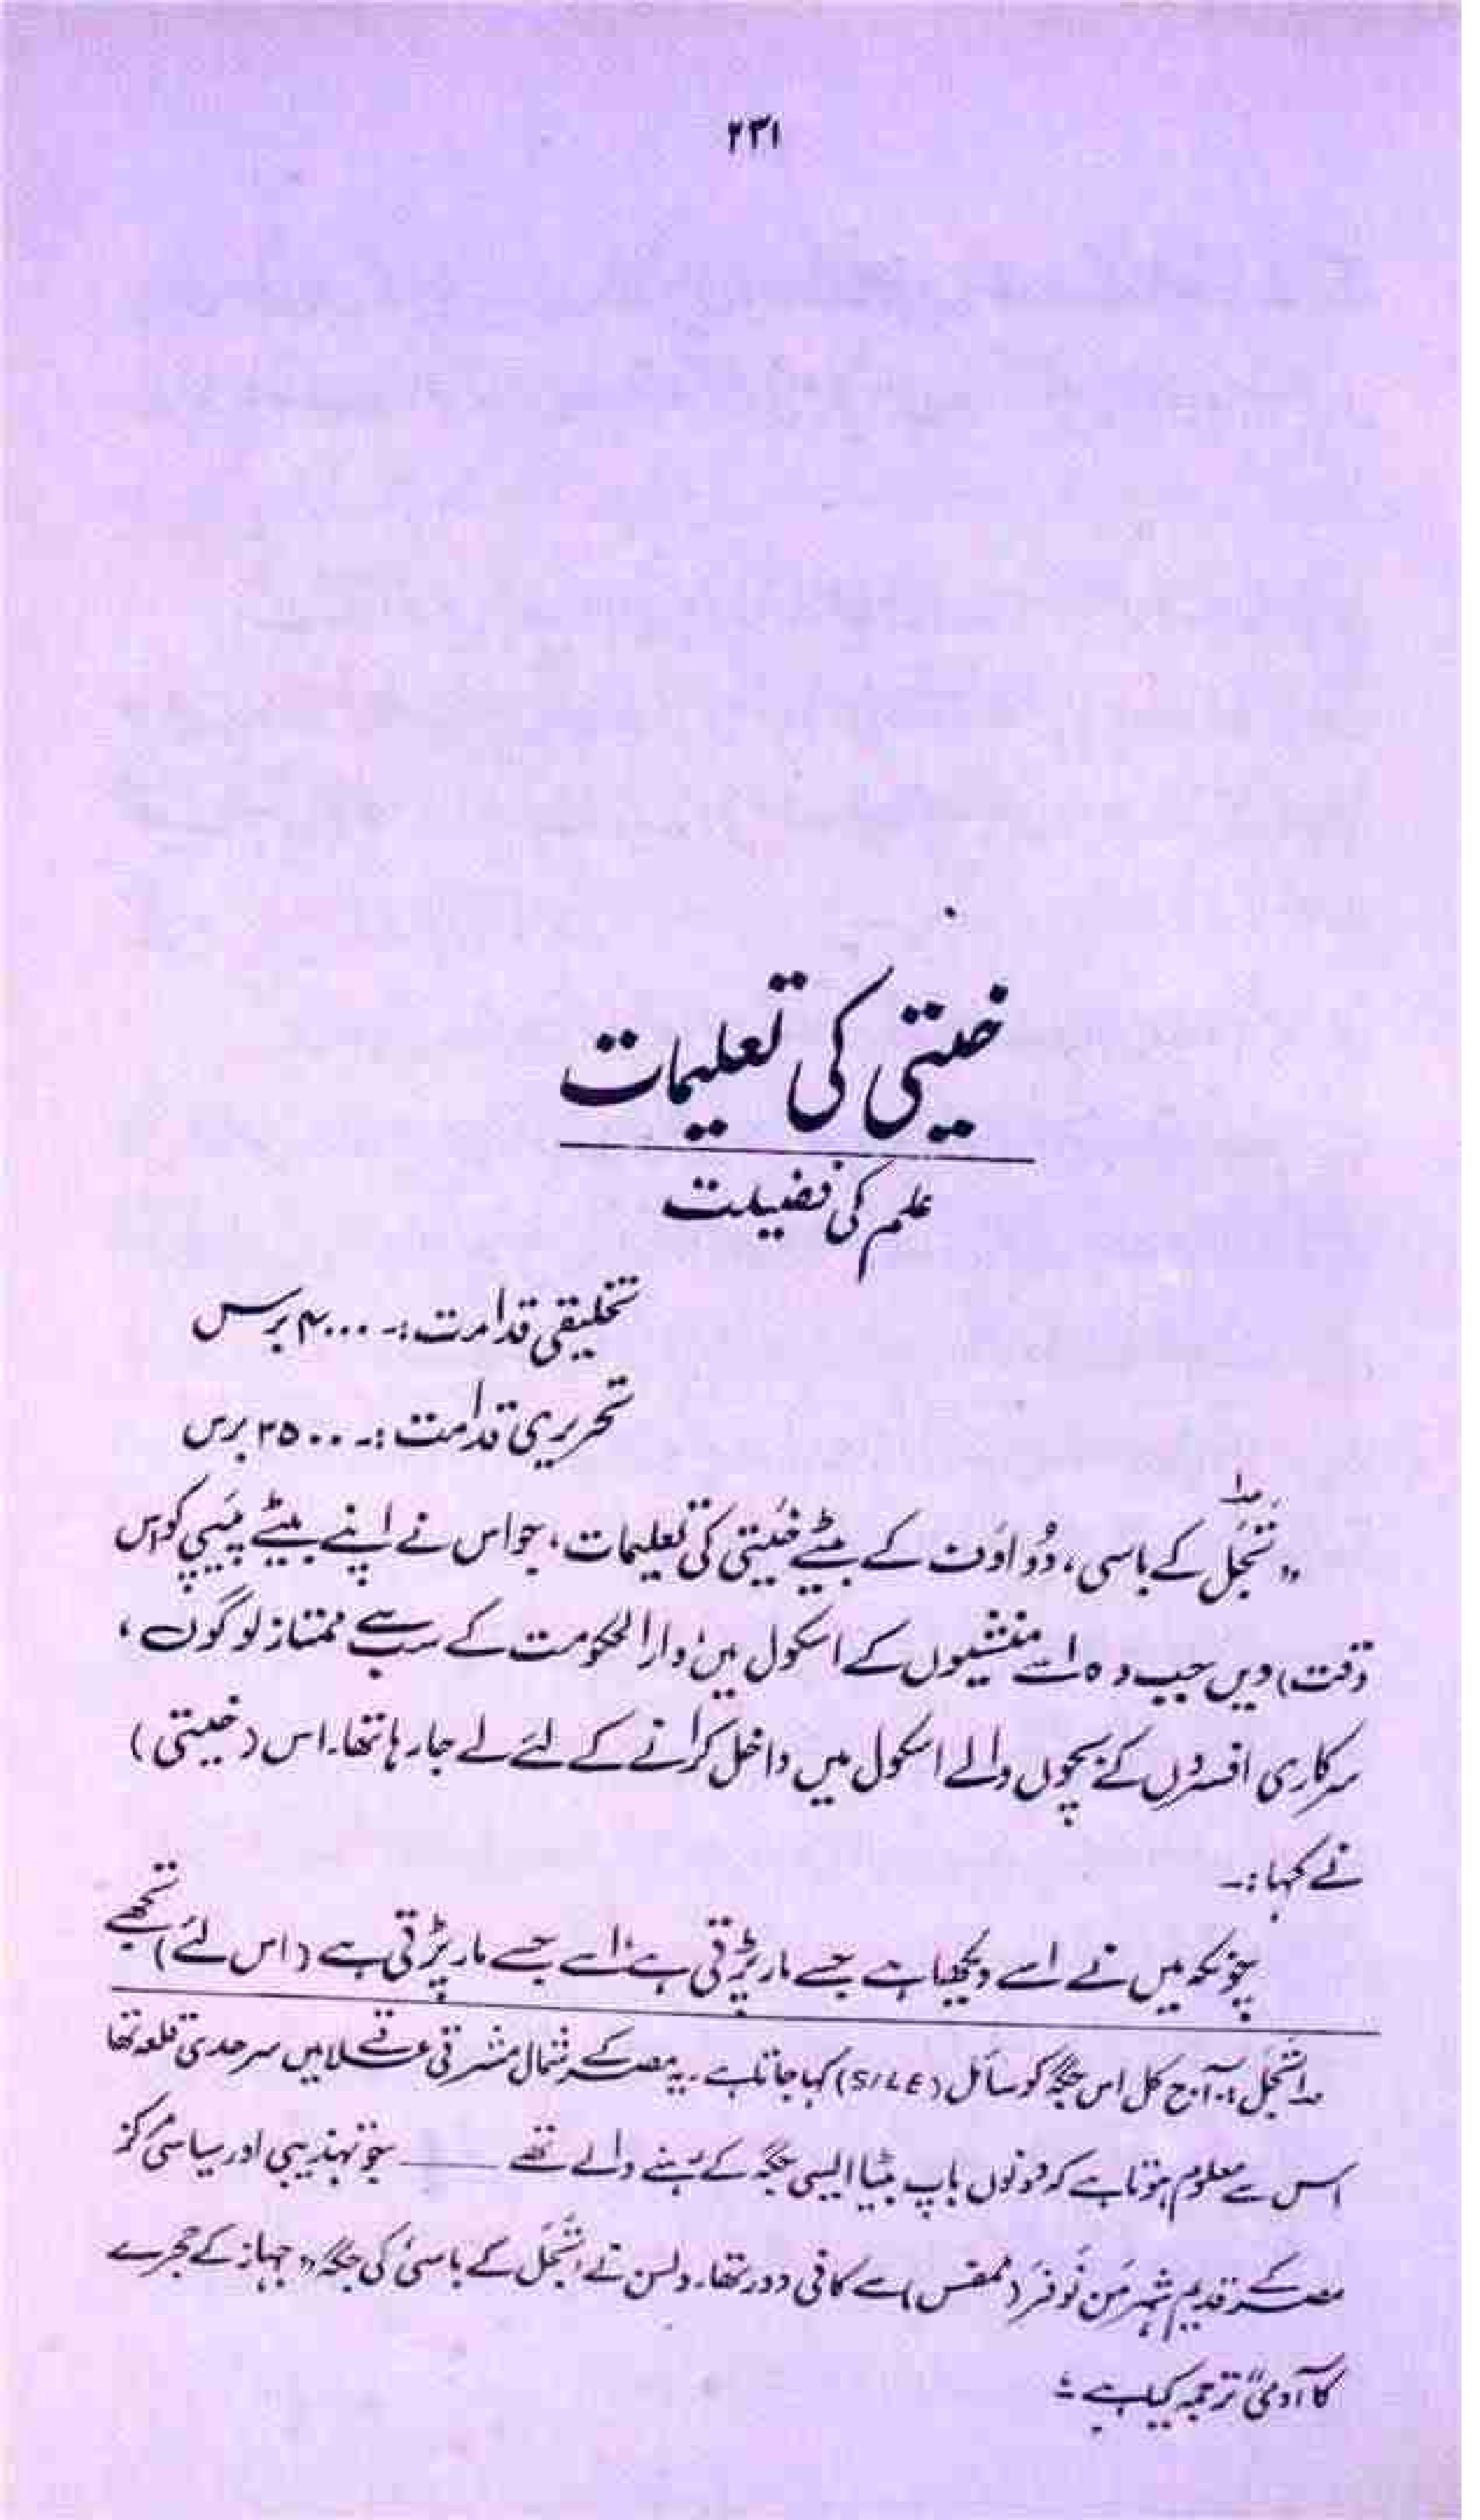 ۲۳۱
خیتی کی تعلیمات
علم کی فضیلت
تخلیقی قدامت :۔ ۴۰۰۰ برس
تحریری قدامت :۔ ۳۵۰۰ برس
"تجل کے باسی، دُواوَف کے بیٹے خیتی کی تعلیمات، جو اس نے اپنے بیٹے پیپی کو اس
وقت) دیں جب وہ اسے منشیوں کے اسکول میں، دارالحکومت کے سب سے ممتاز لوگوں،
سرکاری افسروں کے بچوں والے اسکول میں داخل کرانے کے لئے لے جا رہا تھا۔ اس (خیتی)
نے کہا :۔
چونکہ میں نے اسے دیکھا ہے جسے مار پڑتی ہے، اسے جسے مار پڑتی ہے (اس لئے) تجھے
ما تجل :۔ آج کل اس جگہ کو سائل (SILE) کہا جاتا ہے۔ یہ مصر کے شمال مشرقی علاقے میں سرحدی قلعہ تھا
اس سے معلوم ہوتا ہے کہ دونوں باپ بیٹا ایسی جگہ کے رہنے والے تھے —— جو تہذیبی اور سیاسی مرکز
مصر کے قدیم شہر مَن نُوفَر (ممفس) سے کافی دور تھا۔ ولسن نے تجل کے باسی کی جگہ "جہاز کے حجرے
کا آدمی" ترجمہ کیا ہے ؛